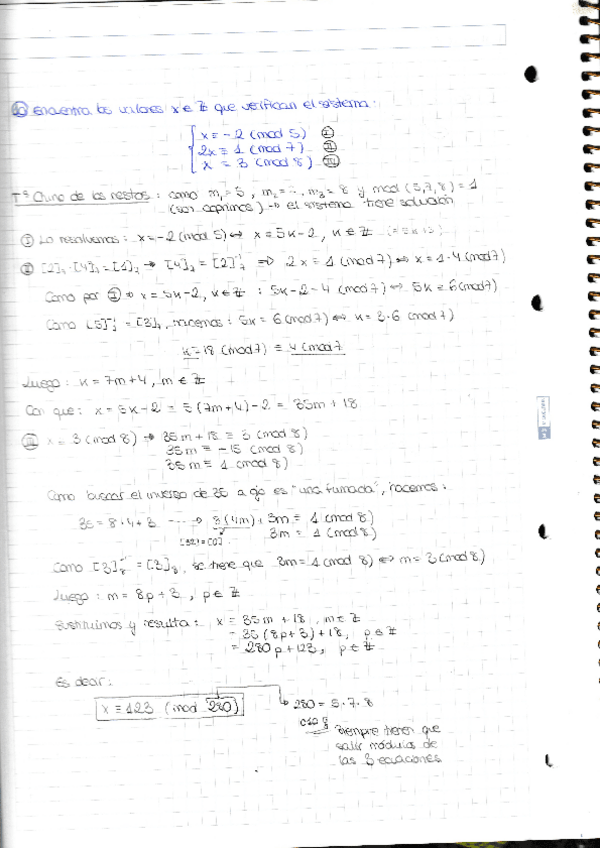 ⑩ Encuentra los valores x ∈ ℤ que verifican el sistema:
x ≡ -2 (mod 5) Ⓘ
2x ≡ 1 (mod 7) Ⓘ Ⓘ
x ≡ 3 (mod 8) Ⓘ Ⓘ Ⓘ
Tª Chino de los restos: como m₁ = 5, m₂ = 7, m₃ = 8 y mcd (5,7,8) = 1
(son coprimos) → el sistema tiene solución
Ⓘ Lo resolvemos: x ≡ -2 (mod 5) ↔ x = 5k-2, k ∈ ℤ
Ⓘ Ⓘ [2]₇·[4]₇ = [1]₇ → [4]₇ = [2]₇⁻¹ ⇒ 2x ≡ 1 (mod 7) ⇔ x ≡ 1·4 (mod 7)
Como por Ⓘ x = 5k-2, k ∈ ℤ : 5k-2 = 4 (mod 7) ⇔ 5k ≡ 6 (mod 7)
Como [5]₇⁻¹ = [3]₇, hacemos: 5k ≡ 6 (mod 7) ⇔ k = 3·6 (mod 7)
k = 18 (mod 7) ≡ 4 (mod 7
Luego: k = 7m+4, m ∈ ℤ
Con que: x = 5k-2 = 5(7m+4)-2 = 35m+18
Ⓘ Ⓘ Ⓘ x ≡ 3 (mod 8) → 35m+18 ≡ 3 (mod 8)
35m ≡ -15 (mod 8)
35m ≡ 1 (mod 8)
Como buscar el inverso de 35 a ojo es "una fumada", hacemos:
35 = 8·4+3 ---→ 8(4m)+3m ≡ 1 (mod 8)
[32]=[0] 3m ≡ 1 (mod 8)
Como [3]₈⁻¹ = [3]₈, se tiene que 3m ≡ 1 (mod 8) ⇔ m ≡ 3 (mod 8)
Luego: m = 8p+3, p ∈ ℤ
Sustituimos y resulta: x = 35m+18, m ∈ ℤ
= 35(8p+3)+18, p ∈ ℤ
= 280p+123, p ∈ ℤ
Es decir:
x ≡ 123 (mod 280) → 280 = 5·7·8
Siempre tienen que
salir módulos de
las 3 ecuaciones